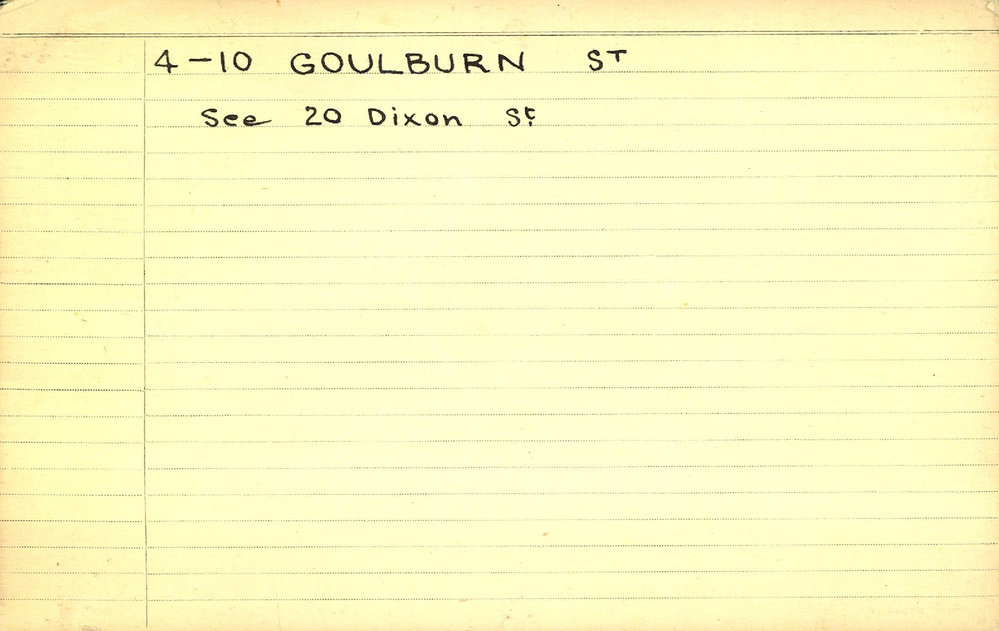 4-10 GOULBURN ST
See 20 Dixon St